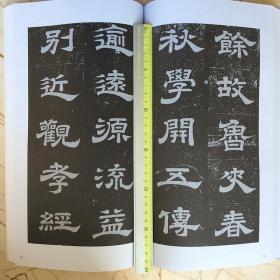 餘故魯史春
秋學開五傳
逾遠源流益
別近觀孝經